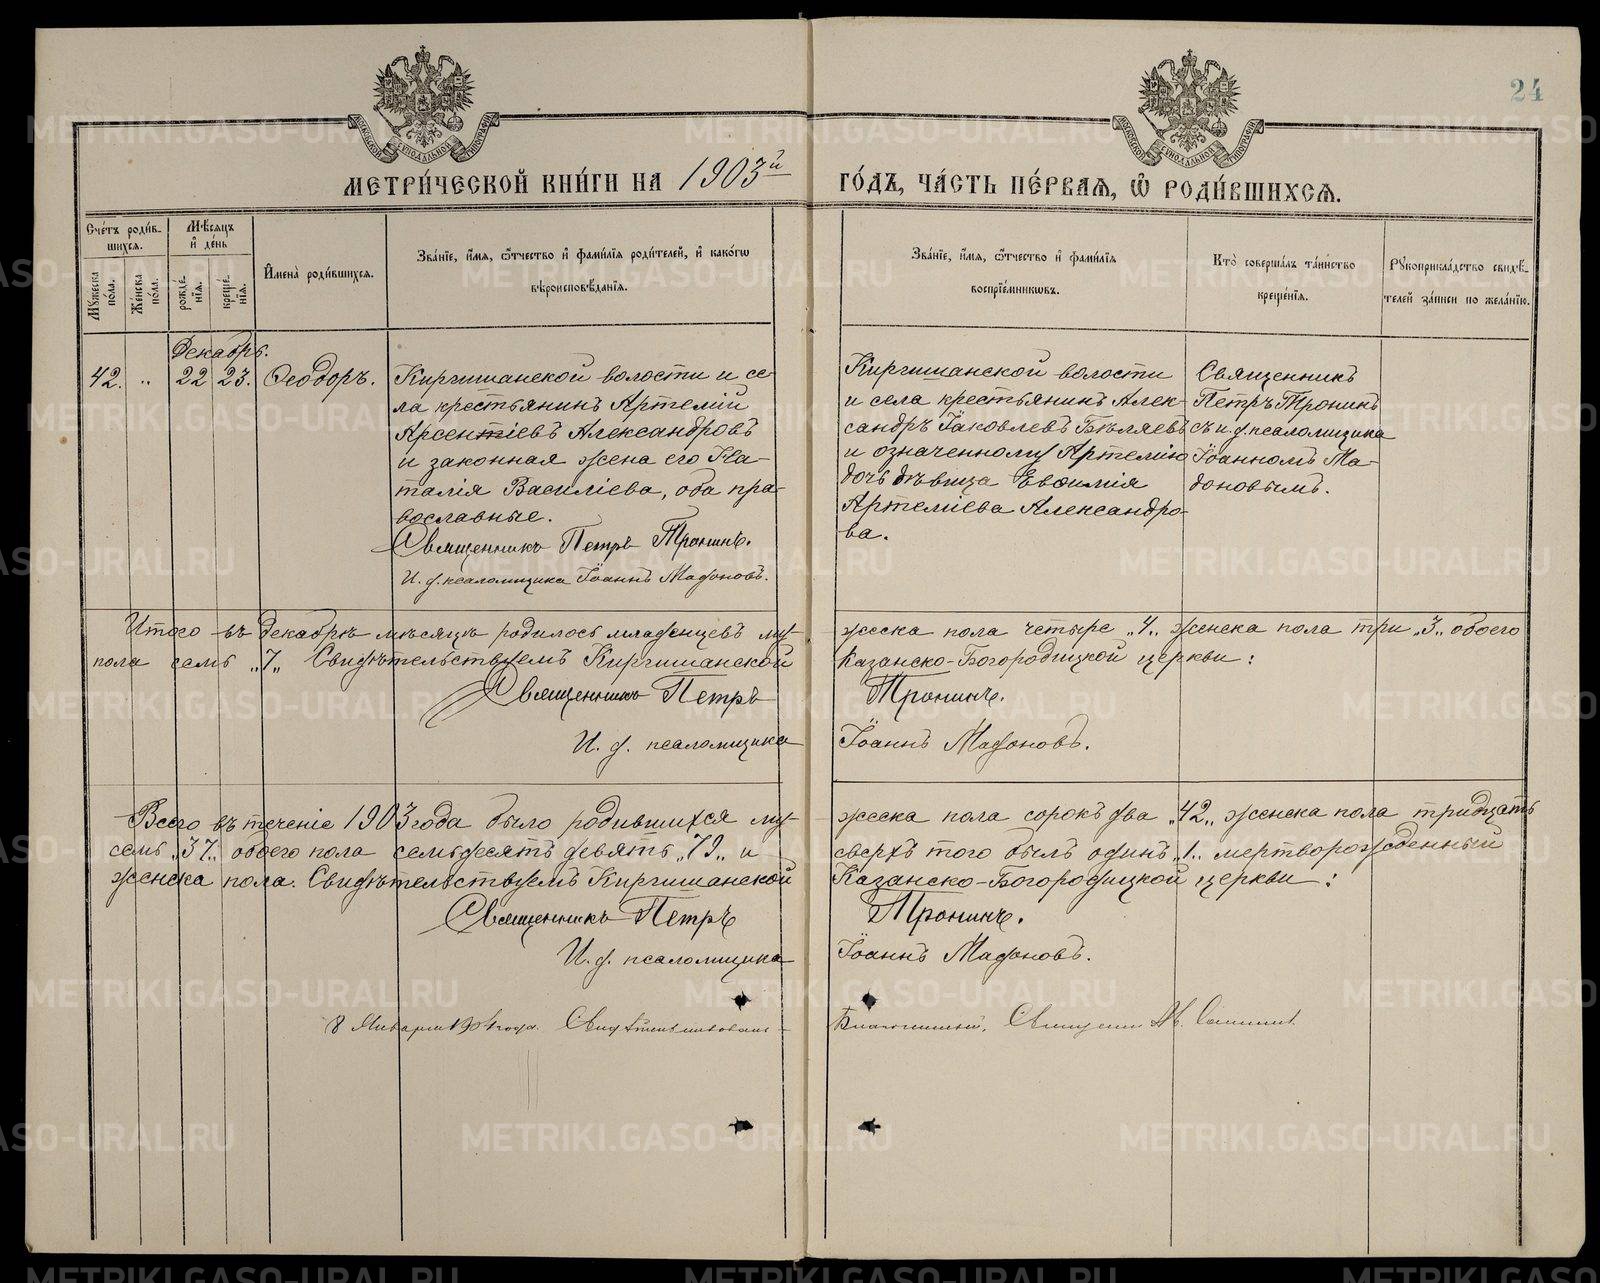 24
МЕТРИ́ЧЕСКОЙ КНИ́ГИ НА 1903й ГО́ДЪ, ЧА́СТЬ ПЕ́РВАѦ, Ѿ РОДИ́ВШИХСѦ.
Сче́тъ роди́в-
шихсѧ.
Мꙋжеска по́ла.
Же́нска по́ла.
Мѣ́сѧцъ
и҆ де́нь
рожде́-
нїѧ.
креще́-
нїѧ.
И҆мена̀ роди́вшихсѧ.
Зва́нїе, и҆́мѧ, ѻ҆́тчество и҆ фами́лїѧ роди́телей, и҆ како́гѡ
вѣроисповѣ́данїѧ.
Зва́нїе, и҆́мѧ, ѻ҆́тчество и҆ фами́лїѧ
воспрїе́мникѡвъ.
Кто̀ соверша́лъ та́инство
креще́нїѧ.
Рꙋкоприкла́дство свидѣ́-
телей за́писи по жела́нїю.
Декабрь.
42. „ 22 23. Ѳеодоръ.
Киргишанской волости и се-
ла крестьянинъ Артемій
Арсентіевъ Александровъ
и законная жена его На-
талія Василіева, оба пра-
вославные.
Священникъ Петръ Тронинъ.
И. д. псаломщика Іоаннъ Мадоновъ.
Киргишанской волости
и села крестьянинъ Алек-
сандръ Іаковлевъ Бѣляевъ
и означенному Артемію
дочь дѣвица Евѳимія
Артеміева Александро-
ва.
Священникъ
Петръ Тронинъ
съ и. д. псаломщика
Іоанномъ Ма-
доновымъ.
Итого въ декабрѣ мѣсяцѣ родилось младенцевъ му-жеска пола четыре „4„ женска пола три „3„ обоего
пола семь „7„ Свидѣтельствуемъ Киргишанской Казанско-Богородицкой церкви:
Священникъ Петръ Тронинъ.
И. д. псаломщика Іоаннъ Мадоновъ.
Всего въ теченіе 1903 года было родившихся му-жеска пола сорокъ два „42„ женска пола тридцать
семь „37„ обоего пола семьдесятъ девять „79„ и сверхъ того былъ одинъ „1„ мертворожденный
женска пола. Свидѣтельствуемъ Киргишанской Казанско-Богородицкой церкви:
Священникъ Петръ Тронинъ.
И. д. псаломщика Іоаннъ Мадоновъ.
8 Января 1904 года. Благочинный, Священн
METRIKI.GASO-URAL.RU